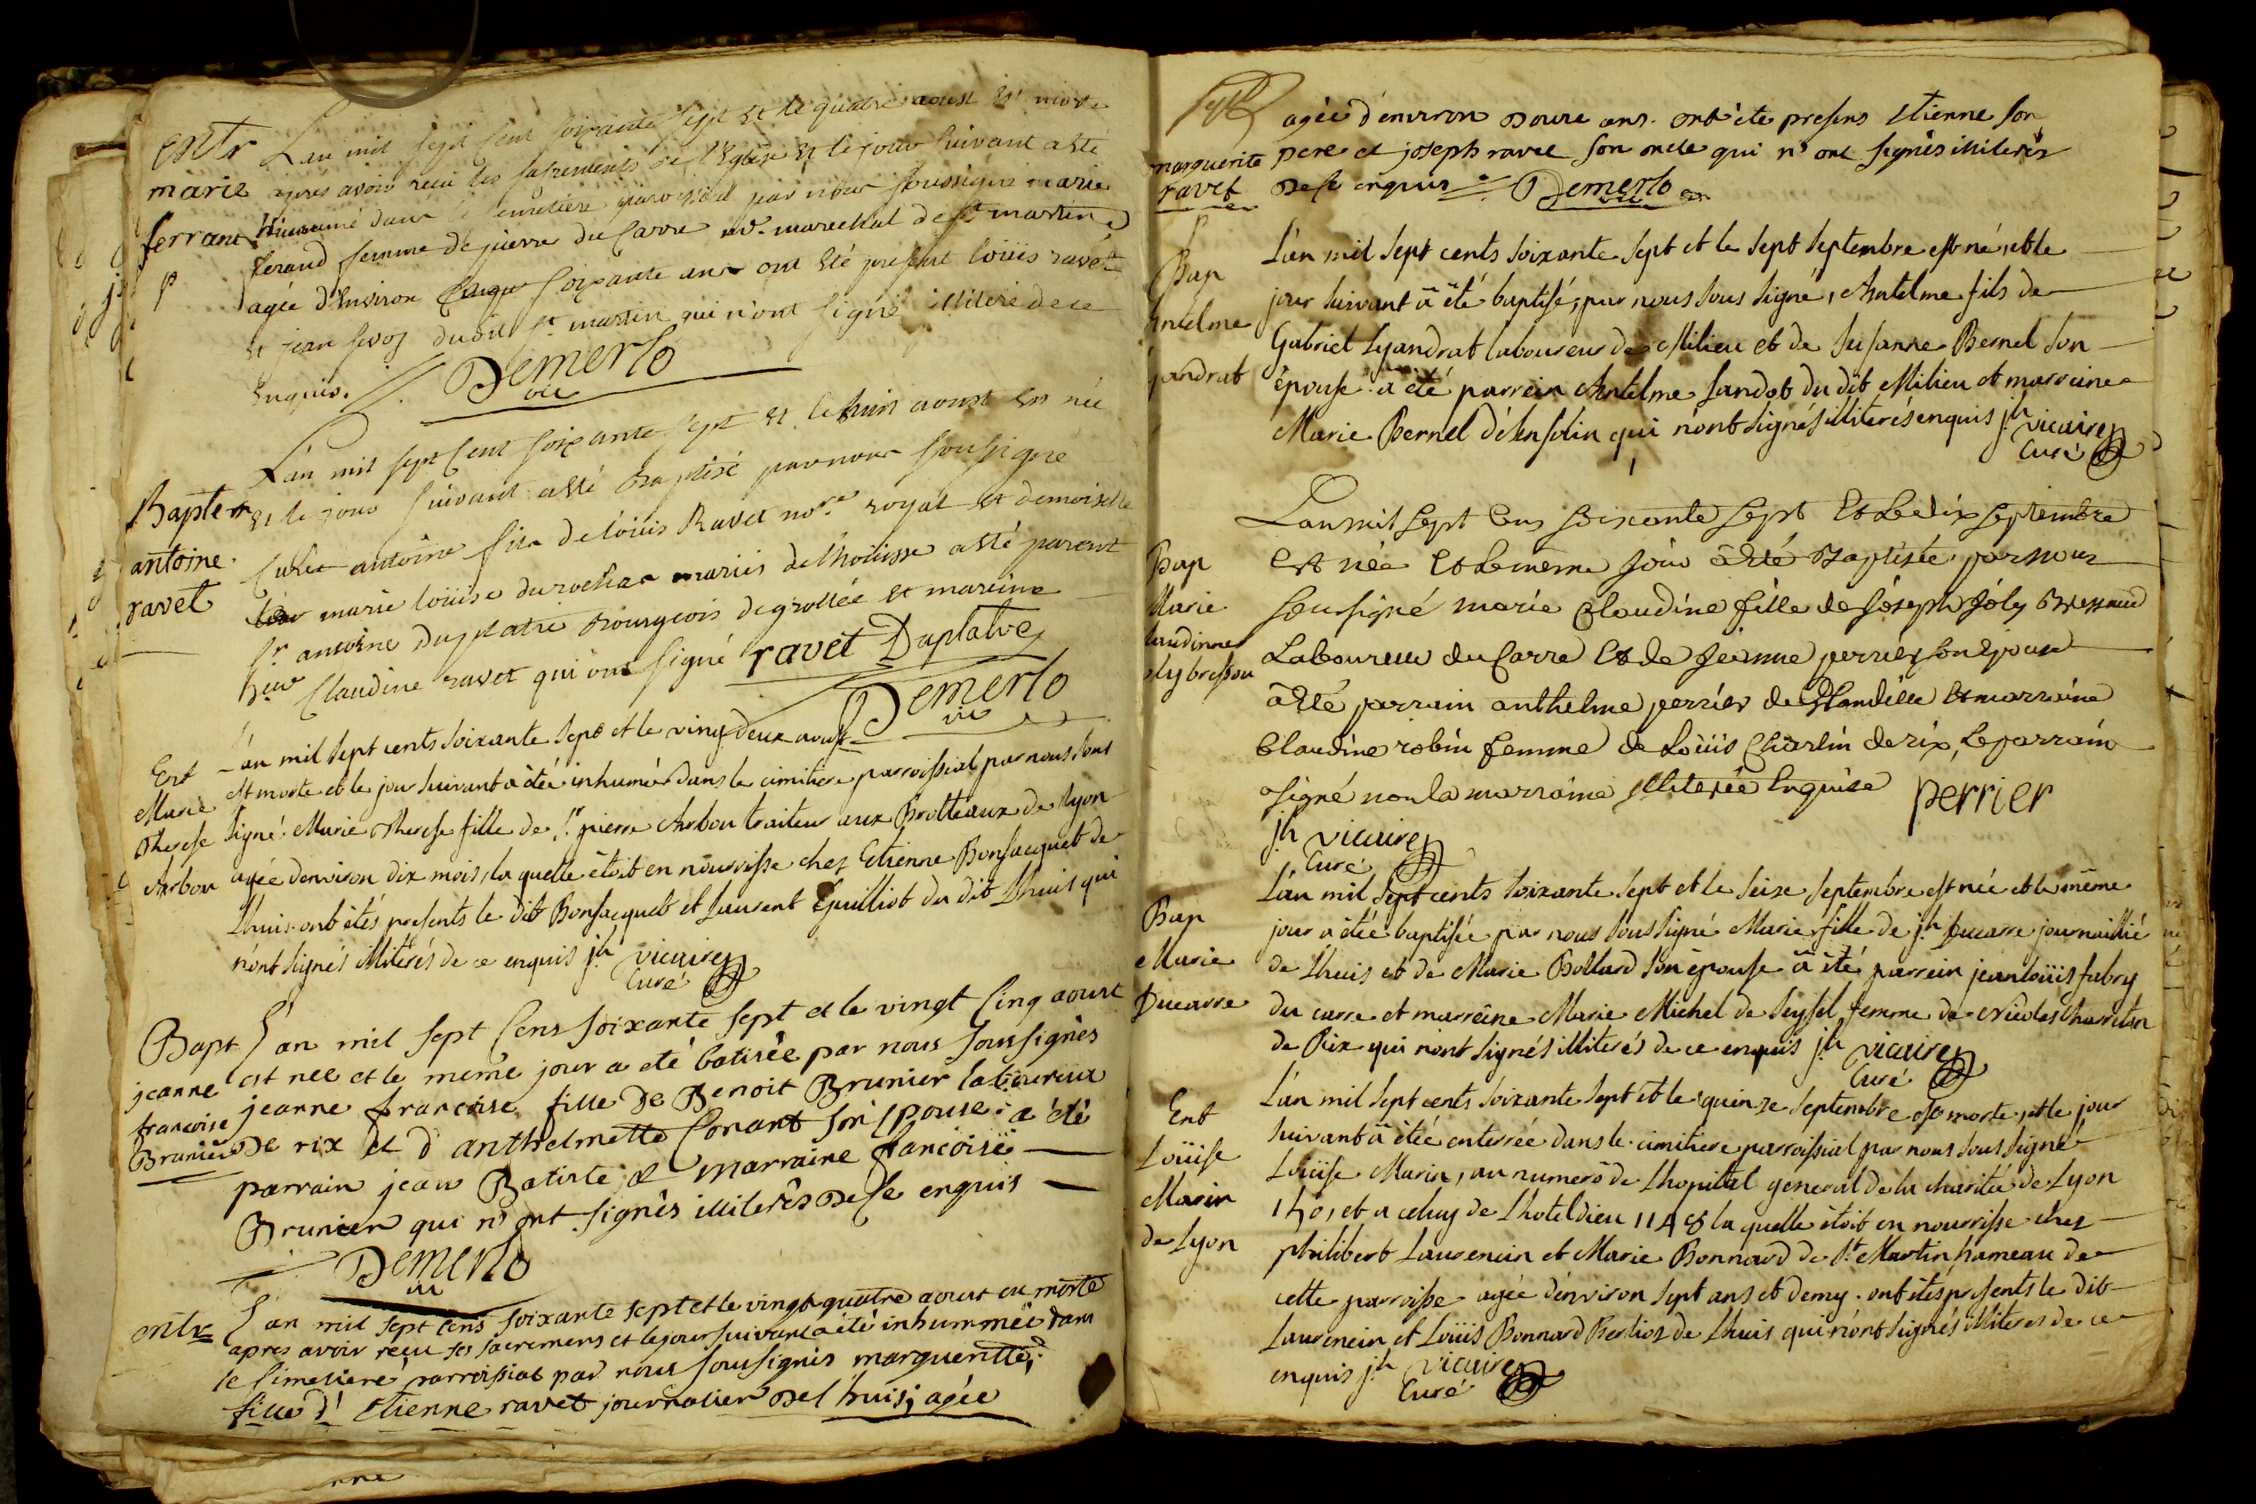 Entr
marie
ferrant
L'an mil sept cent soixante sept et le quatre aoust est morte
après avoir reçu les sacrements de l'Eglise et le jour suivant a été
inhumé dans le cimetière paroissial par nous soussigné marie
ferand femme de pierre du Carre marechal de st martin
agée d'Environ soixante ans ont été présent loüis ravet
et jean dudit st martin qui n'ont signé illiteré de ce
enquis. Demerlo
vic
Baptem
antoine
ravet
L'an mil sept Cent soixante sept et le huit aoust est né
et le jour suivant a été Baptisé par nous soussigné
antoine fils de loüis Ravet no.re royal et demoiselle
marie loüise durochat mariés de lhoüisse a été parent
sr antoine duplatre Bourgeois de grollée et mareine
Claudine ravet qui ont signé ravet Duplatre
Demerlo
vic
Ent
Marie
Therese
Arbou
L'an mil sept cents soixante sept et le vingt deux aoust
est morte et le jour suivant a étée inhumée dans le cimitiere parroissial par nous sous
signé Marie Therese fille de Sr pierre Arbou traiteur aux Brotteaux de Lyon
agée d'environ dix mois, la quelle étoit en nourrisse chez Etienne Bonjacquet de
Lhuis ont étés presents le dit Bonjacquet et Laurent Guilliot du dit Lhuis qui
n'ont signés illiterés de ce enquis jh vicaire
Curé
Bapt
jeanne
francoise
Brunier
L'an mil sept Cens soixante sept et le vingt Cinq aoust
est nee et le méme jour a eté batisée par nous soussignés
jeanne francoise fille de Benoit Brunier laboureur
de rix et d'anthelmette Conant son Epouse a été
parrain jean Batiste et marraine francoise
Brunier qui n'ont signés illiterés de se enquis
Demerlo
vic
entr
L'an mil sept cens soixante sept et le vingt quatre aoust est morte
apres avoir reçu ses sacremens et le jour suivant a été inhummée dans
le simetiere parroissial par nous soussignés margueritte
fille d'Etienne ravet journalier de l'huis, agée
marguerite
ravet
agée d'environ douze ans. ont été presens Etienne son
pere et joseph ravet son oncle qui n'ont signés illiterés
de se enquis Demerlo
vic
Bap
Antelme
jandrat
L'an mil sept cents soixante sept et le sept septembre est né, et le
jour suivant a été baptisé, par nous sous signé, Antelme fils de
Gabriel Lyandrat laboureur de Milieu et de Susanne Bernel son
épouse a été parrein Antelme Landot du dit Milieu et marreine
Marie Bernel d'Ansolin qui n'ont signés illiterés enquis jh vicaire
Curé
Bap
Marie
laudinne
oly bressou
L'an mil sept Cens soixante sept Et Le dix septembre
est née et le même jour a été Baptisée par nous
soussigné marie Claudine fille de joseph joly
Laboureur du Carre Et de jeanne perrier son épouse
a été parrain anthelme perrier de Et marraine
Claudine robin femme de Loüis Charlin de rix, Le parrain
a signé non la marraine illiterée Enquise perrier
jh vicaire
Curé
Bap
Marie
Ducarre
L'an mil sept cents soixante sept et le seize septembre est née et le même
jour a étée baptisée par nous sous signé Marie fille de jh Ducarre journaillié
de Lhuis et de Marie Bollard son épouse a été parrein jean loüis fabry
du carre et marreine Marie Michel de Seysel femme de Nicolas Charreton
de Rix qui n'ont signés illiterés de ce enquis jh vicaire
Curé
Ent
Loüise
Marin
de Lyon
L'an mil sept cents soixante sept et le quinze septembre est morte, et le jour
suivant a étée enterrée dans le cimitiere parroissial par nous sous signé
Loüise Marin, au numero de Lhopital general de la charité de Lyon
140, et a celuy de Lhotel dieu 1148 la quelle étoit en nourrisse chez
philibert Laurencin et Marie Bonnard de St Martin hameau de
cette parroisse agée d'environ sept ans et demy. ont étés presents le dit
Laurencin et Loüis Bonnard Berlioz de Lhuis qui n'ont signés illiterés de ce
enquis jh vicaire
Curé